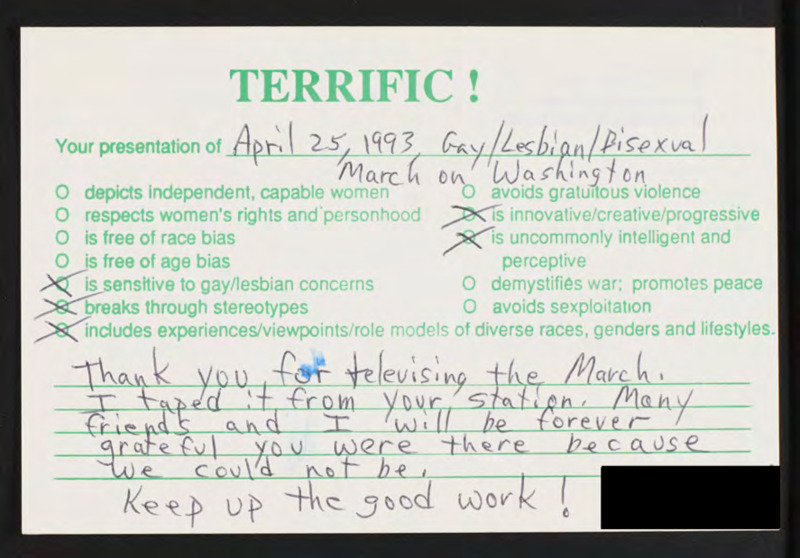 TERRIFIC !
Your presentation of April 25, 1993, Gay/Lesbian/Bisexual
March on Washington
O depicts independent, capable women
O respects women's rights and personhood
O is free of race bias
O is free of age bias
O is sensitive to gay/lesbian concerns
O breaks through stereotypes
O avoids gratuitous violence
O is innovative/creative/progressive
O is uncommonly intelligent and
perceptive
O demystifies war; promotes peace
O avoids sexploitation
O includes experiences/viewpoints/role models of diverse races, genders and lifestyles.
Thank you for televising the March.
I taped it from your station. Many
friends and I will be forever
grateful you were there because
we could not be.
Keep up the good work !